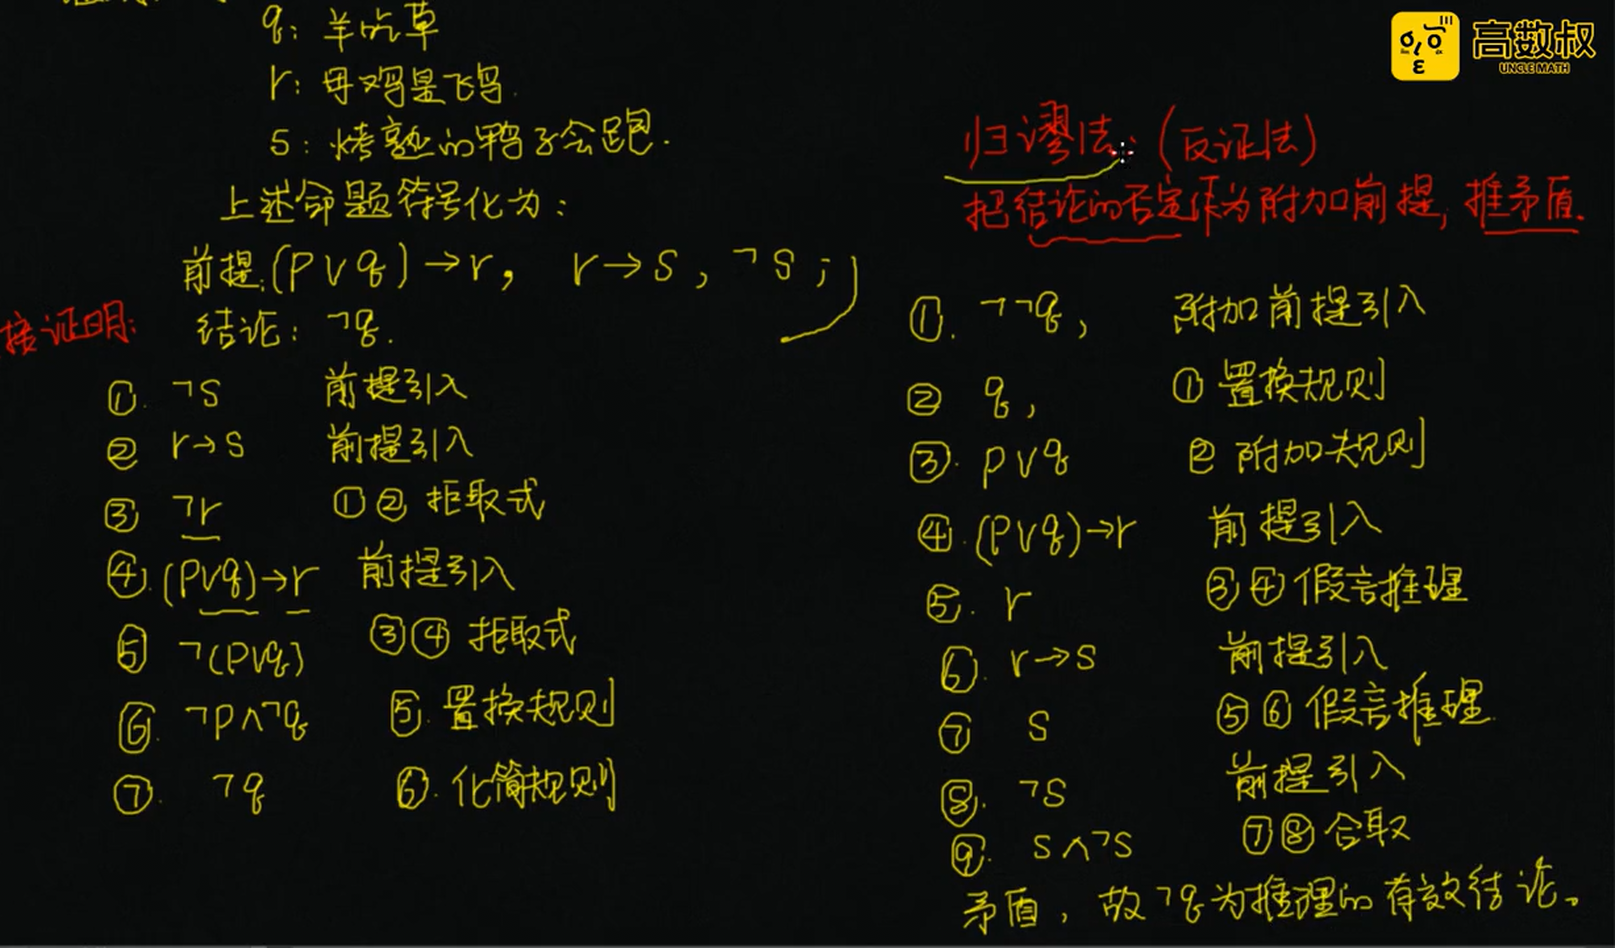 q: 羊吃草
r: 母鸡是飞鸟.
s: 烤熟的鸭子会跑.
上述命题符号化为:
前提:(p∨q)→r, r→s, ¬s;
接证明:
结论: ¬q.
①. ¬s 前提引入
② r→s 前提引入
③ ¬r ①② 拒取式
④. (p∨q)→r 前提引入
⑤ ¬(p∨q) ③④ 拒取式
⑥. ¬p∧¬q ⑤. 置换规则
⑦. ¬q ⑥. 化简规则
高数叔
UNCLE MATH
归谬法: (反证法)
把结论的否定作为附加前提, 推矛盾.
①. ¬¬q, 附加前提引入
② q, ① 置换规则
③. p∨q ② 附加规则
④. (p∨q)→r 前提引入
⑤. r ③④ 假言推理
⑥. r→s 前提引入
⑦ s ⑤⑥ 假言推理.
⑧. ¬s 前提引入
⑨. s∧¬s ⑦⑧ 合取
矛盾, 故¬q为推理的有效结论。